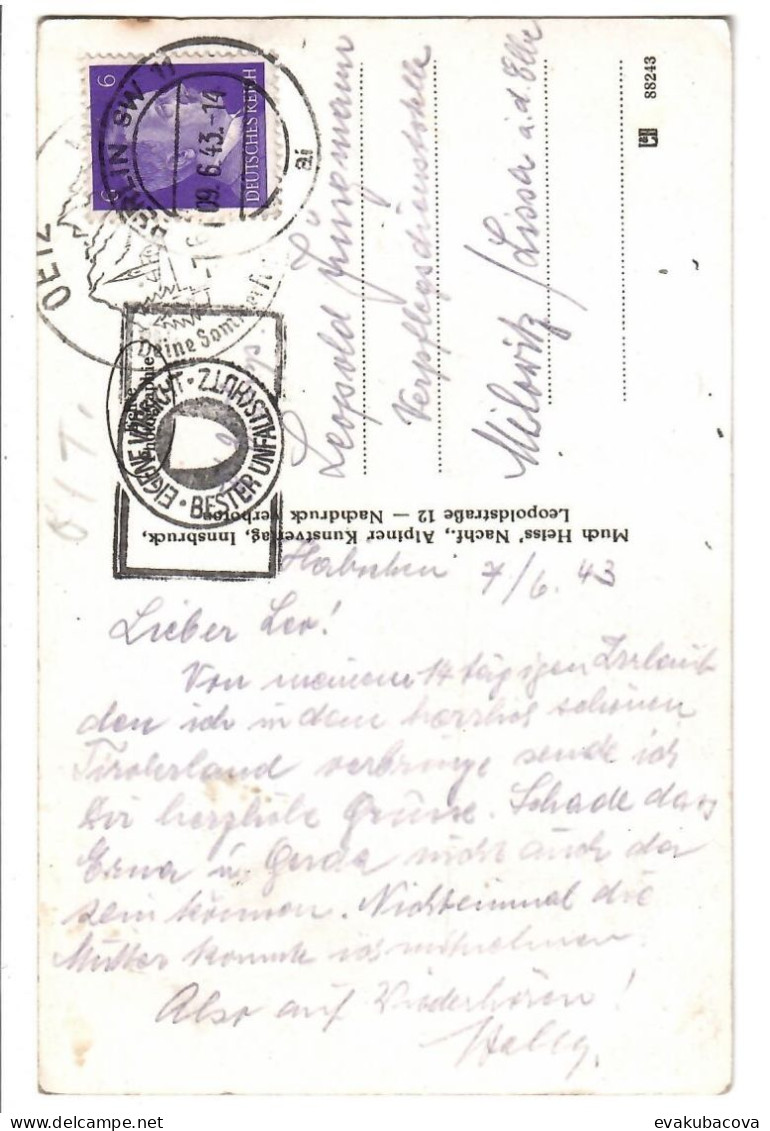 6
6
DEUTSCHES REICH
BERLIN SW 11
09.6.43.-14
ai
OETZ
Deine Sommerfri
EIGENE VORSICHT · BESTER UNFALLSCHUTZ ·
Echte
Photographie
Leopold
Verpflegsdienststelle
Milowitz / Lissa a.d. Elbe
88243
Much Heiss' Nachf., Alpiner Kunstverlag, Innsbruck,
Leopoldstraße 12 — Nachdruck verboten
7/6. 43
Lieber Leo!
Von meinem 14 tägigen Urlaub
den ich in dem herrlich schönen
Tirolerland verbringe sende ich
Dir herzliche Grüsse. Schade dass
Erna u. Gerda nicht auch da
sein können. Nichteinmal die
Mutter konnte ich mitnehmen.
Also auf Wiederhören!
evakubacova